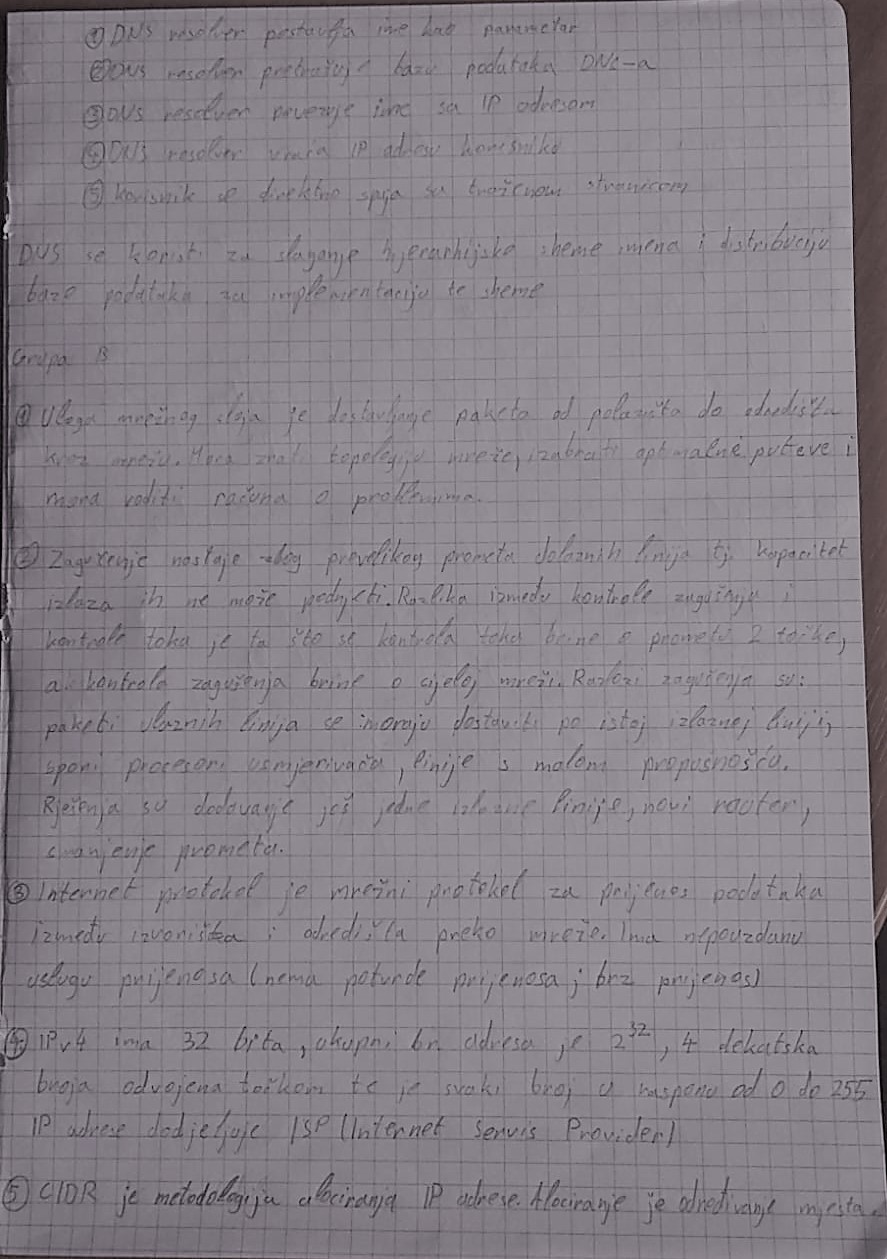 ① DNS resolver postavlja ime kao parametar
② DNS resolver pretražuje bazu podataka DNS-a
③ DNS resolver povezuje ime sa IP adresom
④ DNS resolver vraća IP adresu korisniku
⑤ korisnik se direktno spja sa traženom stranicom
DNS se koristi za slaganje hijerarhijske sheme imena i distribuciju
baze podataka za implementaciju te sheme
Grupa B
① Uloga mrežnog sloja je dostavljanje paketa od polazišta do odredišta
kroz mrežu. Mora znati topologiju mreže, izabrati optimalne puteve i
mora voditi računa o problemima.
② Zagušenje nastaje zbog prevelikog prometa dolaznih linija tj. kapacitet
izlaza ih ne može podnjeti. Razlika između kontrole zagušenja i
kontrole toka je ta što se kontrola toka brine o prometu 2 točke,
a kontrola zagušenja brine o cijeloj mreži. Razlozi zagušenja su:
paketi ulaznih linija se moraju dostaviti po istoj izlaznoj liniji,
spori procesori usmjerivača, linije s malom propusnošću.
Rješenja su dodavanje još jedne izlazne linije, novi router,
smanjenje prometa.
③ Internet protokol je mrežni protokol za prijenos podataka
između izvorišta i odredišta preko mreže. Ima nepouzdanu
uslugu prijenosa (nema potvrde prijenosa; brz prijenos)
④ IPv4 ima 32 bita, ukupni br. adresa je 2³², 4 dekatska
broja odvojena točkom te je svaki broj u rasponu od 0 do 255
IP adrese dodjeljuje ISP (Internet Servis Provider)
⑤ CIDR je metodologija alociranja IP adrese. Alociranje je određivanje mjesta.